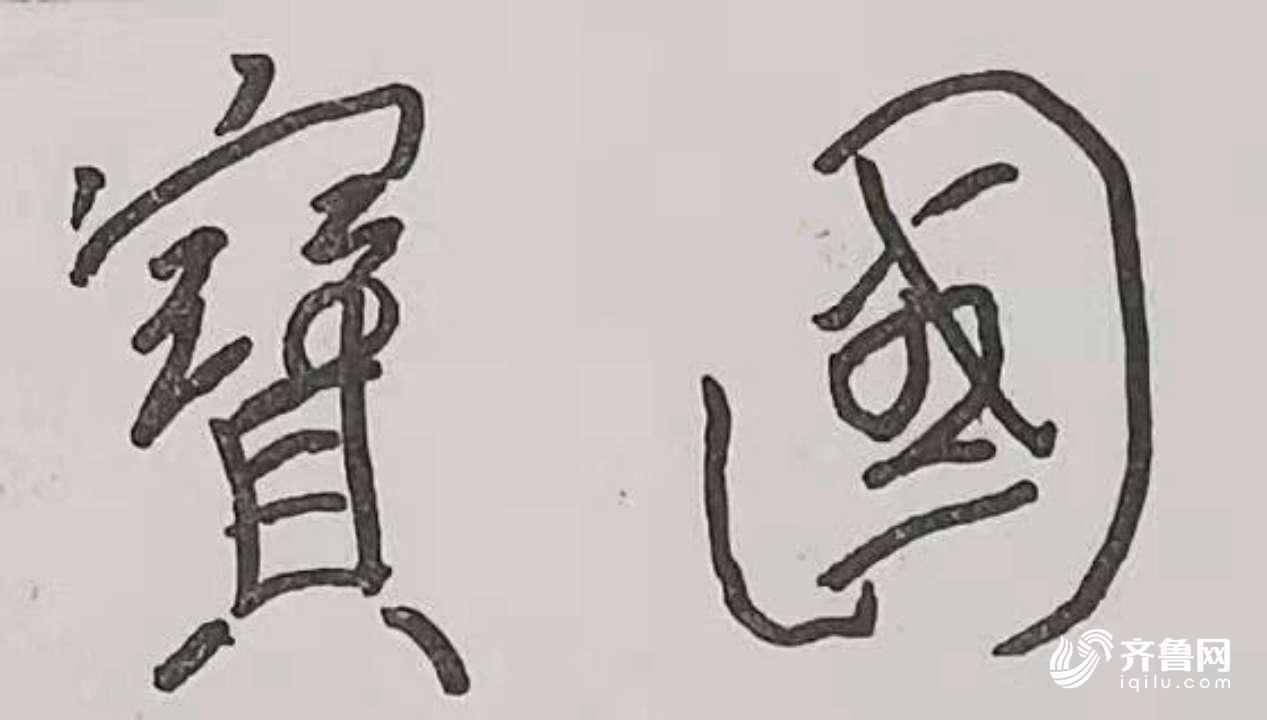 寶國
齐鲁网
iqilu.com